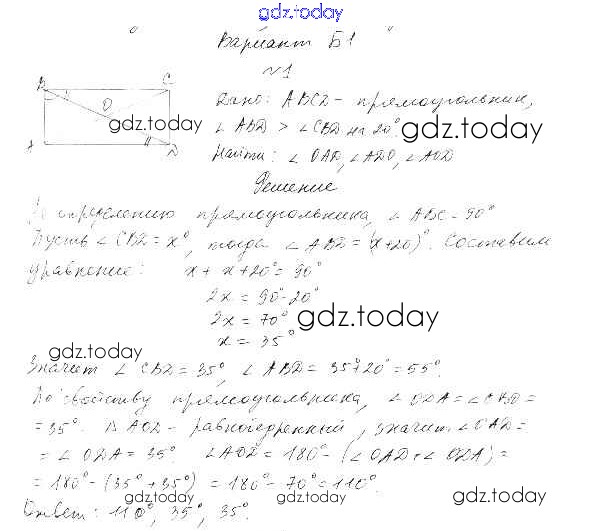 gdz.today
" Вариант Б1 "
№1
B C
O
A D
Дано: ABCD - прямоугольник,
∠ ABD > ∠ CBD на 20°.
gdz.today gdz.today
Найти: ∠ OAD, ∠ ADO, ∠ AOD
Решение
По определению прямоугольника, ∠ ABC = 90°
Пусть ∠ CBD = x°, тогда ∠ ABD = (x+20)°. Составим
gdz.today gdz.today
уравнение: x + x + 20° = 90°
2x = 90° - 20°
2x = 70°
gdz.today
x = 35°
gdz.today
Значит ∠ CBD = 35°, ∠ ABD = 35+20° = 55°.
По свойству прямоугольника, ∠ ODA = ∠ CBD =
= 35°. Δ AOD - равнобедренный, значит ∠ OAD =
= ∠ ODA = 35°. ∠ AOD = 180° - (∠ OAD + ∠ ODA) =
= 180° - (35° + 35°) = 180° - 70° = 110°.
gdz.today gdz.today
Ответ: 110°, 35°, 35°.